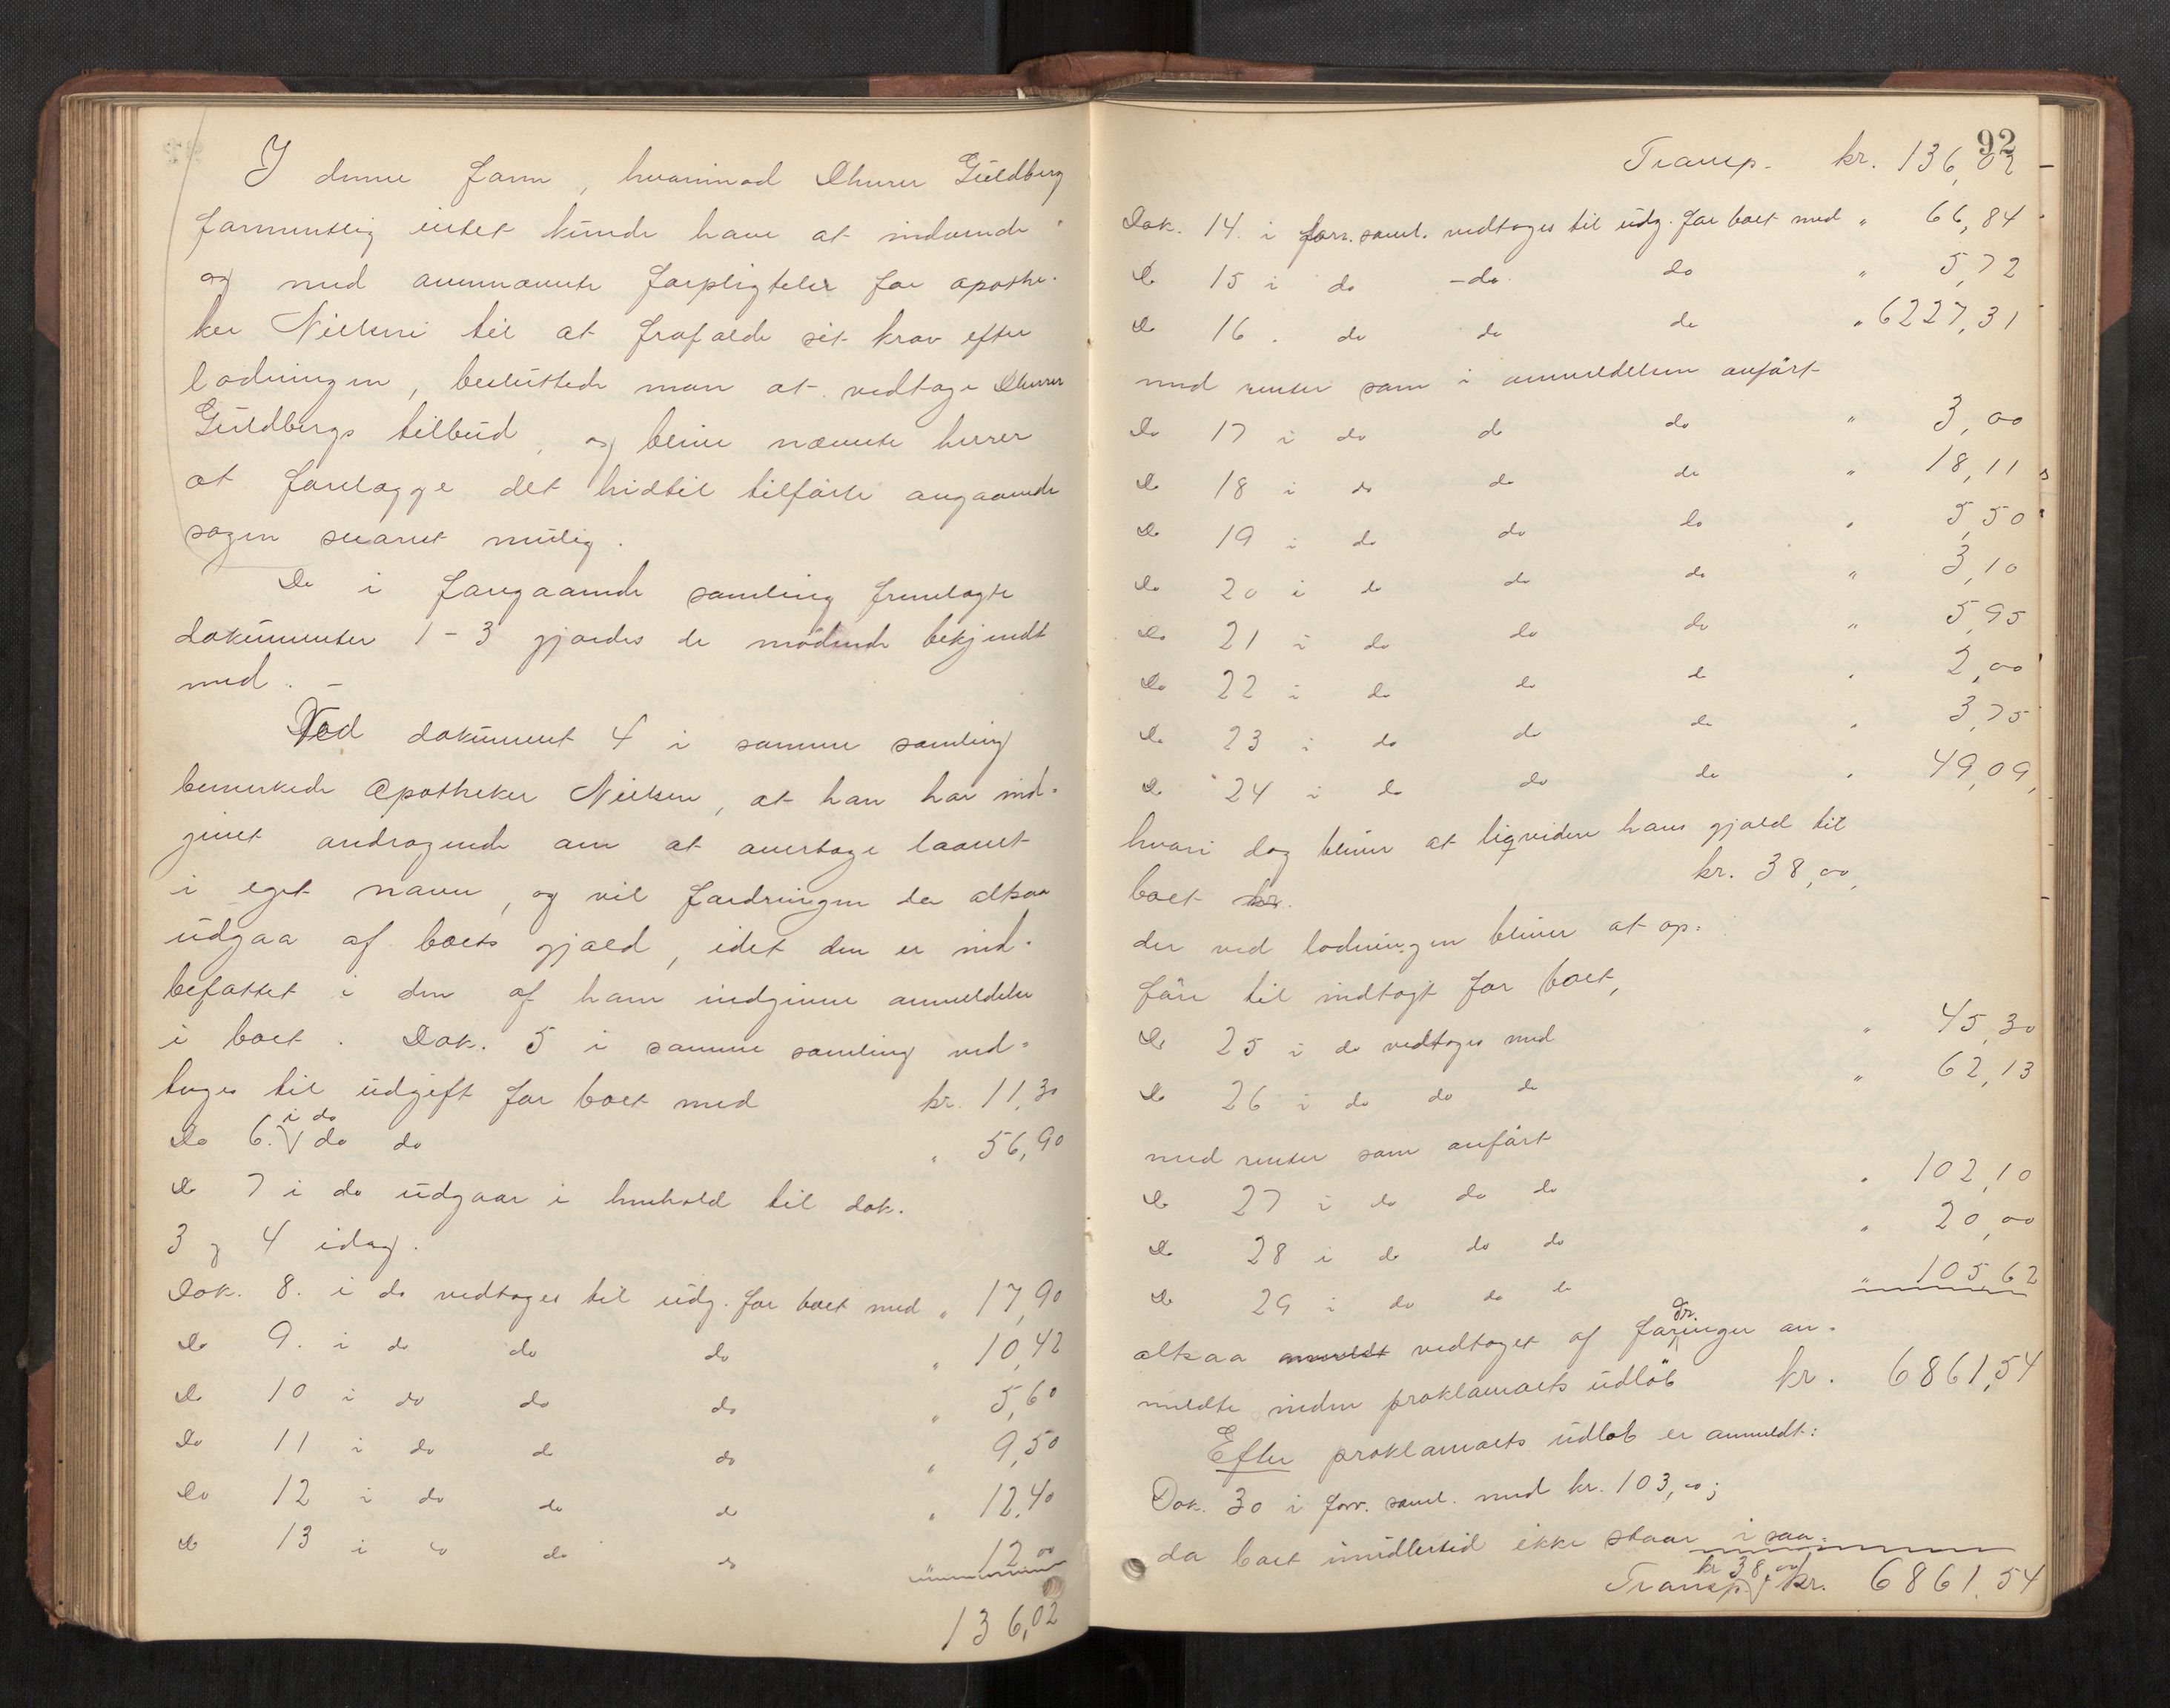 I denne form, hvorimod Dherrer Güldberg
formentlig intet kunde have at indvende
og med ovennævnte forpligtelse for apothe-
ker Nielsen til at frafalde sit krav efter
lodningen, besluttede man at vedtage Dherrer
Güldbergs tilbud, og bliver nævnte herrer
at forelægge det hidtil tilførte angaaende
sagen snarest mulig.
De i foregaaende samling fremlagte
dokumenter 1-3 gjordes de mødende bekjendt
med. –
Ved dokument 4 i samme samling
bemerkede Apotheker Nielsen, at han har ind-
givet andragende om at overtage laanet
i eget navn, og vil fordringen da altsaa
udgaa af boets gjæld, idet den er ind-
befattet i den af ham indgivne anmeldelse
i boet. Dok. 5 i samme samling ved-
toges til udgift for boet med kr. 11,30
Do 6. i do do do " 56,90
Do 7 i do udgaar i henhold til dok.
3 og 4 idag.
Dok. 8. i do vedtoges til udg. for boet med " 17,90
Do 9. i do do do " 10,42
Do 10 i do do do " 5,60
Do 11 i do do do " 9,50
Do 12 i do do do " 12,40
Do 13 i do do do " 12,00
136,02
92
Transp. kr. 136,02
Dok. 14. i forr. saml. vedtoges til udg. for boet med " 66,84
Do 15 i do - do do " 5,72
Do 16. do do do " 6227,31
med renter som i anmeldelsen anført
Do 17 i do do do " 3,00
Do 18 i do do do " 18,11
Do 19 i do do do " 5,50
Do 20 i do do do " 3,10
Do 21 i do do do " 5,95
Do 22 i do do do " 2,00
Do 23 i do do do " 3,75
Do 24 i do do do " 49,09,
hvori dog bliver at liqvidere hans gjæld til
boet kr. kr. 38,00,
der ved lodningen bliver at op-
føre til indtægt for boet,
Do 25 i do vedtoges med " 45,30
Do 26 i do do do " 62,13
med renter som anført
Do 27 i do do do " 102,10
Do 28 i do do do " 20,00
Do 29 i do do do " 105,62
altsaa anmeldt vedtaget af fordringer an-
meldte inden proklamaets udløb kr. 6861,54
Efter proklamaets udløb er anmeldt:
Dok. 30 i forr. saml. med kr. 103,00;
da boet imidlertid ikke staar i saa-
Transp. kr 38,00 kr. 6861,54